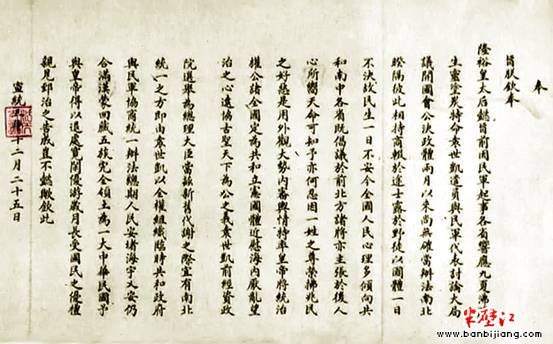 奉
旨朕欽奉
隆裕皇太后懿旨前因民軍起事各省響應九夏沸
生靈塗炭特命袁世凱遣員與民軍代表討論大局
議開國會公決政體兩月以來尚無確當辦法南北
睽隔彼此相持商輟於途士露於野徒以國體一日
不決故民生一日不安今全國人民心理多傾向共
和南中各省既倡議於前北方諸將亦主張於後人
心所嚮天命可知予亦何忍因一姓之尊榮拂兆民
之好惡是用外觀大勢內審輿情特率皇帝將統治
權公諸全國定為共和立憲國體近慰海內厭亂望
治之心遠協古聖天下為公之義袁世凱前經資政
院選舉為總理大臣當茲新舊代謝之際宜有南北
統一之方即由袁世凱以全權組織臨時共和政府
與民軍協商統一辦法總期人民安堵海宇乂安仍
合滿漢蒙回藏五族完全領土為一大中華民國予
與皇帝得以退處寬閒優游歲月長受國民之優禮
親見郅治之告成豈不懿歟欽此
宣統三年十二月二十五日
半壁江
www.banbijiang.com